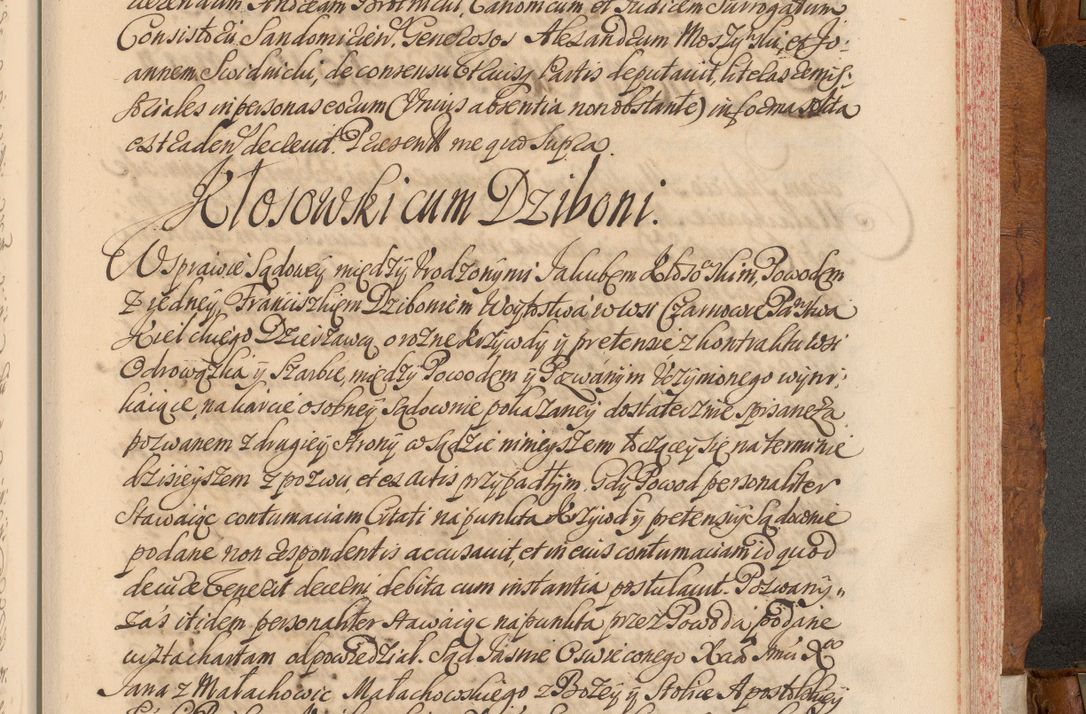 decendum Andream Canonicum et Judicem Surrogatum
Consistorij Sandomirien. Generosos Alexandrum Moszynski, et Jo-
annem Swidnicki, de consensu Partis deputavit, literas remis-
soriales in personas eorum (Unius absentia non obstante) in forma solita
extraden decrevit. Praesen me quo supra.
Kłosowski cum Dziboni.
W sprawie Sądowey między Urodzonymi Jakubem Kłososkim, Powodem
z jedney, Franciszkiem Dzibonim Woytostwa w wsi Czarnowie Państwa
Kielckiego Dzierzawcą o rozne krzywdy y pretensie z kontraktu wsi
Odrowązka y Szarbie, między Powodem y Pozwanym uczynionego wyni-
kaiące, na karcie osobney Sądownie pokazaney dostatecznie spisane, za
pozwanem z drugiey strony w Sądzie ninieyszem toczącey się, na terminie
dzisieyszem z pozwu, et ex actis przypadłym. Gdy Powod personaliter
stawaiąc contumaciam Citati na punkta krzywd y pretensiy Sądownie
podane non respondentis accusavit, et in eius contumaciam id quod
de iure venerit decerni debita cum instantia postulavit. Pozwany
zas itidem personaliter stawaiąc na punkta przez Powoda podane
odpowiedział. Sąd Jasnie Oswieconego Xcia Jmci Xa
Jana z Małachowic Małachowskiego z Bozey y Stolice Apostolskiey